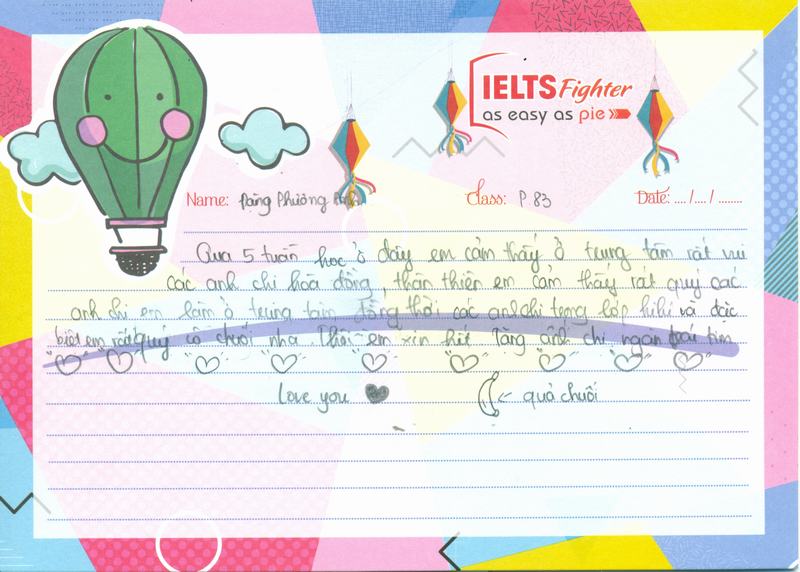 IELTS Fighter
as easy as pie
Name: Đặng Phương Anh Class: P 83 Date: .... /.... / ........
Qua 5 tuần học ở đây em cảm thấy ở trung tâm rất vui
các anh chị hòa đồng, thân thiện em cảm thấy rất quý các
anh chị em làm ở trung tâm đồng thời các anh chị trong lớp hihi và đặc
biệt em rất quý cô chuối nha Thôi em xin hết Tặng anh chị ngàn trái tim
love you
← quả chuối